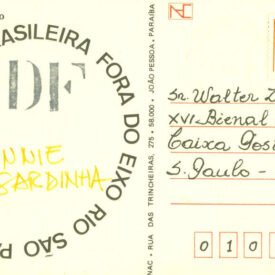 ASILEIRA FORA DO EIXO RIO SÃO PA
DF
NNIE
SARDINHA
NAC - RUA DAS TRINCHEIRAS, 275 - 58.000 - JOÃO PESSOA - PARAÍBA
Sr. Walter Z
XVI-Bienal
Caixa Post
S. Paulo -
0 1 0